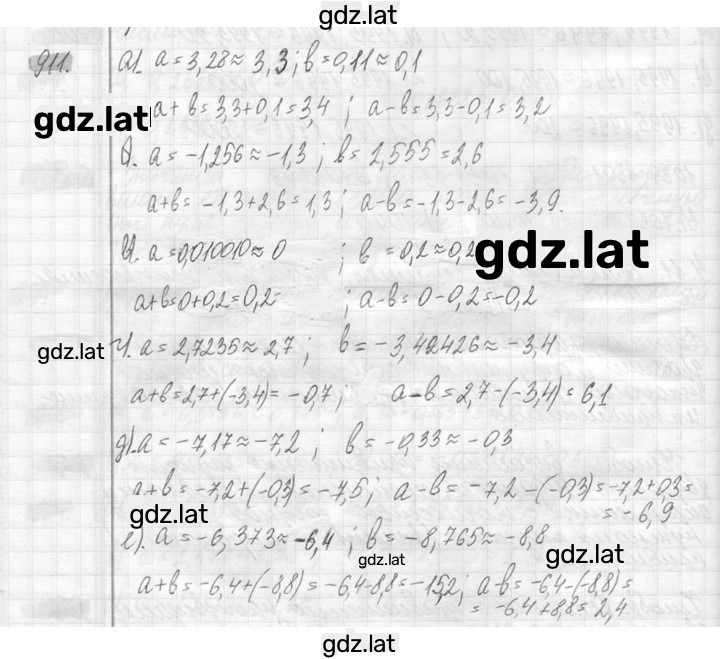 gdz.lat
911. а). a = 3,28 ≈ 3,3; b = 0,11 ≈ 0,1
gdz.lat a + b = 3,3 + 0,1 = 3,4 ; a - b = 3,3 - 0,1 = 3,2
б). a = -1,256 ≈ -1,3 ; b = 2,555 = 2,6
a + b = -1,3 + 2,6 = 1,3 ; a - b = -1,3 - 2,6 = -3,9.
в). a = 0,010010 ≈ 0 ; b = 0,2 ≈ 0,2 gdz.lat
a + b = 0 + 0,2 = 0,2 ; a - b = 0 - 0,2 = -0,2
gdz.lat г). a = 2,7235 ≈ 2,7 ; b = -3,42426 ≈ -3,4
a + b = 2,7 + (-3,4) = -0,7 ; a - b = 2,7 - (-3,4) = 6,1
д). a = -7,17 ≈ -7,2 ; b = -0,33 ≈ -0,3
a + b = -7,2 + (-0,3) = -7,5 ; a - b = -7,2 - (-0,3) = -7,2 + 0,3 =
= -6,9
gdz.lat
е). a = -6,373 ≈ -6,4 ; b = -8,765 ≈ -8,8
gdz.lat gdz.lat
a + b = -6,4 + (-8,8) = -6,4 - 8,8 = -15,2 ; a - b = -6,4 - (-8,8) =
= -6,4 + 8,8 = 2,4
gdz.lat